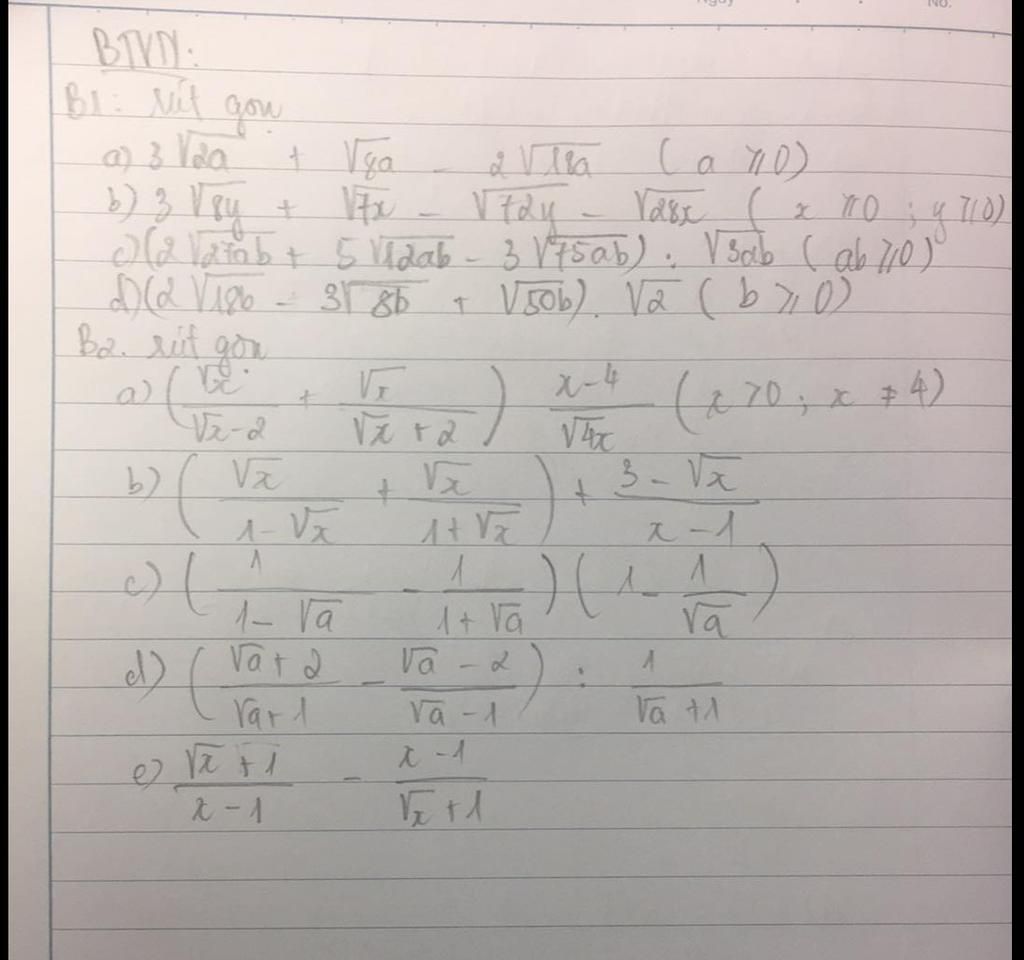 Ngày No.
BTVN:
B1: rút gọn
a) 3√2a + √8a - 2√18a ( a ⩾ 0)
b) 3√8y + √7x - √72y - √28x ( x ⩾ 0 ; y ⩾ 0)
c) (2√27ab + 5√12ab - 3√75ab) : √3ab ( ab ⩾ 0)
d) (2√18b - 3√8b + √50b). √2 ( b ⩾ 0)
B2. rút gọn
a) (√x/(√x-2) + √x/(√x+2)) (x-4)/√4x ( x > 0 ; x ≠ 4)
b) (√x/(1-√x) + √x/(1+√x)) + (3-√x)/(x-1)
c) (1/(1-√a) - 1/(1+√a)) (1 - 1/√a)
d) ((√a+2)/(√a+1) - (√a-2)/(√a-1)) : 1/(√a+1)
e) (√x+1)/(x-1) - (x-1)/(√x+1)